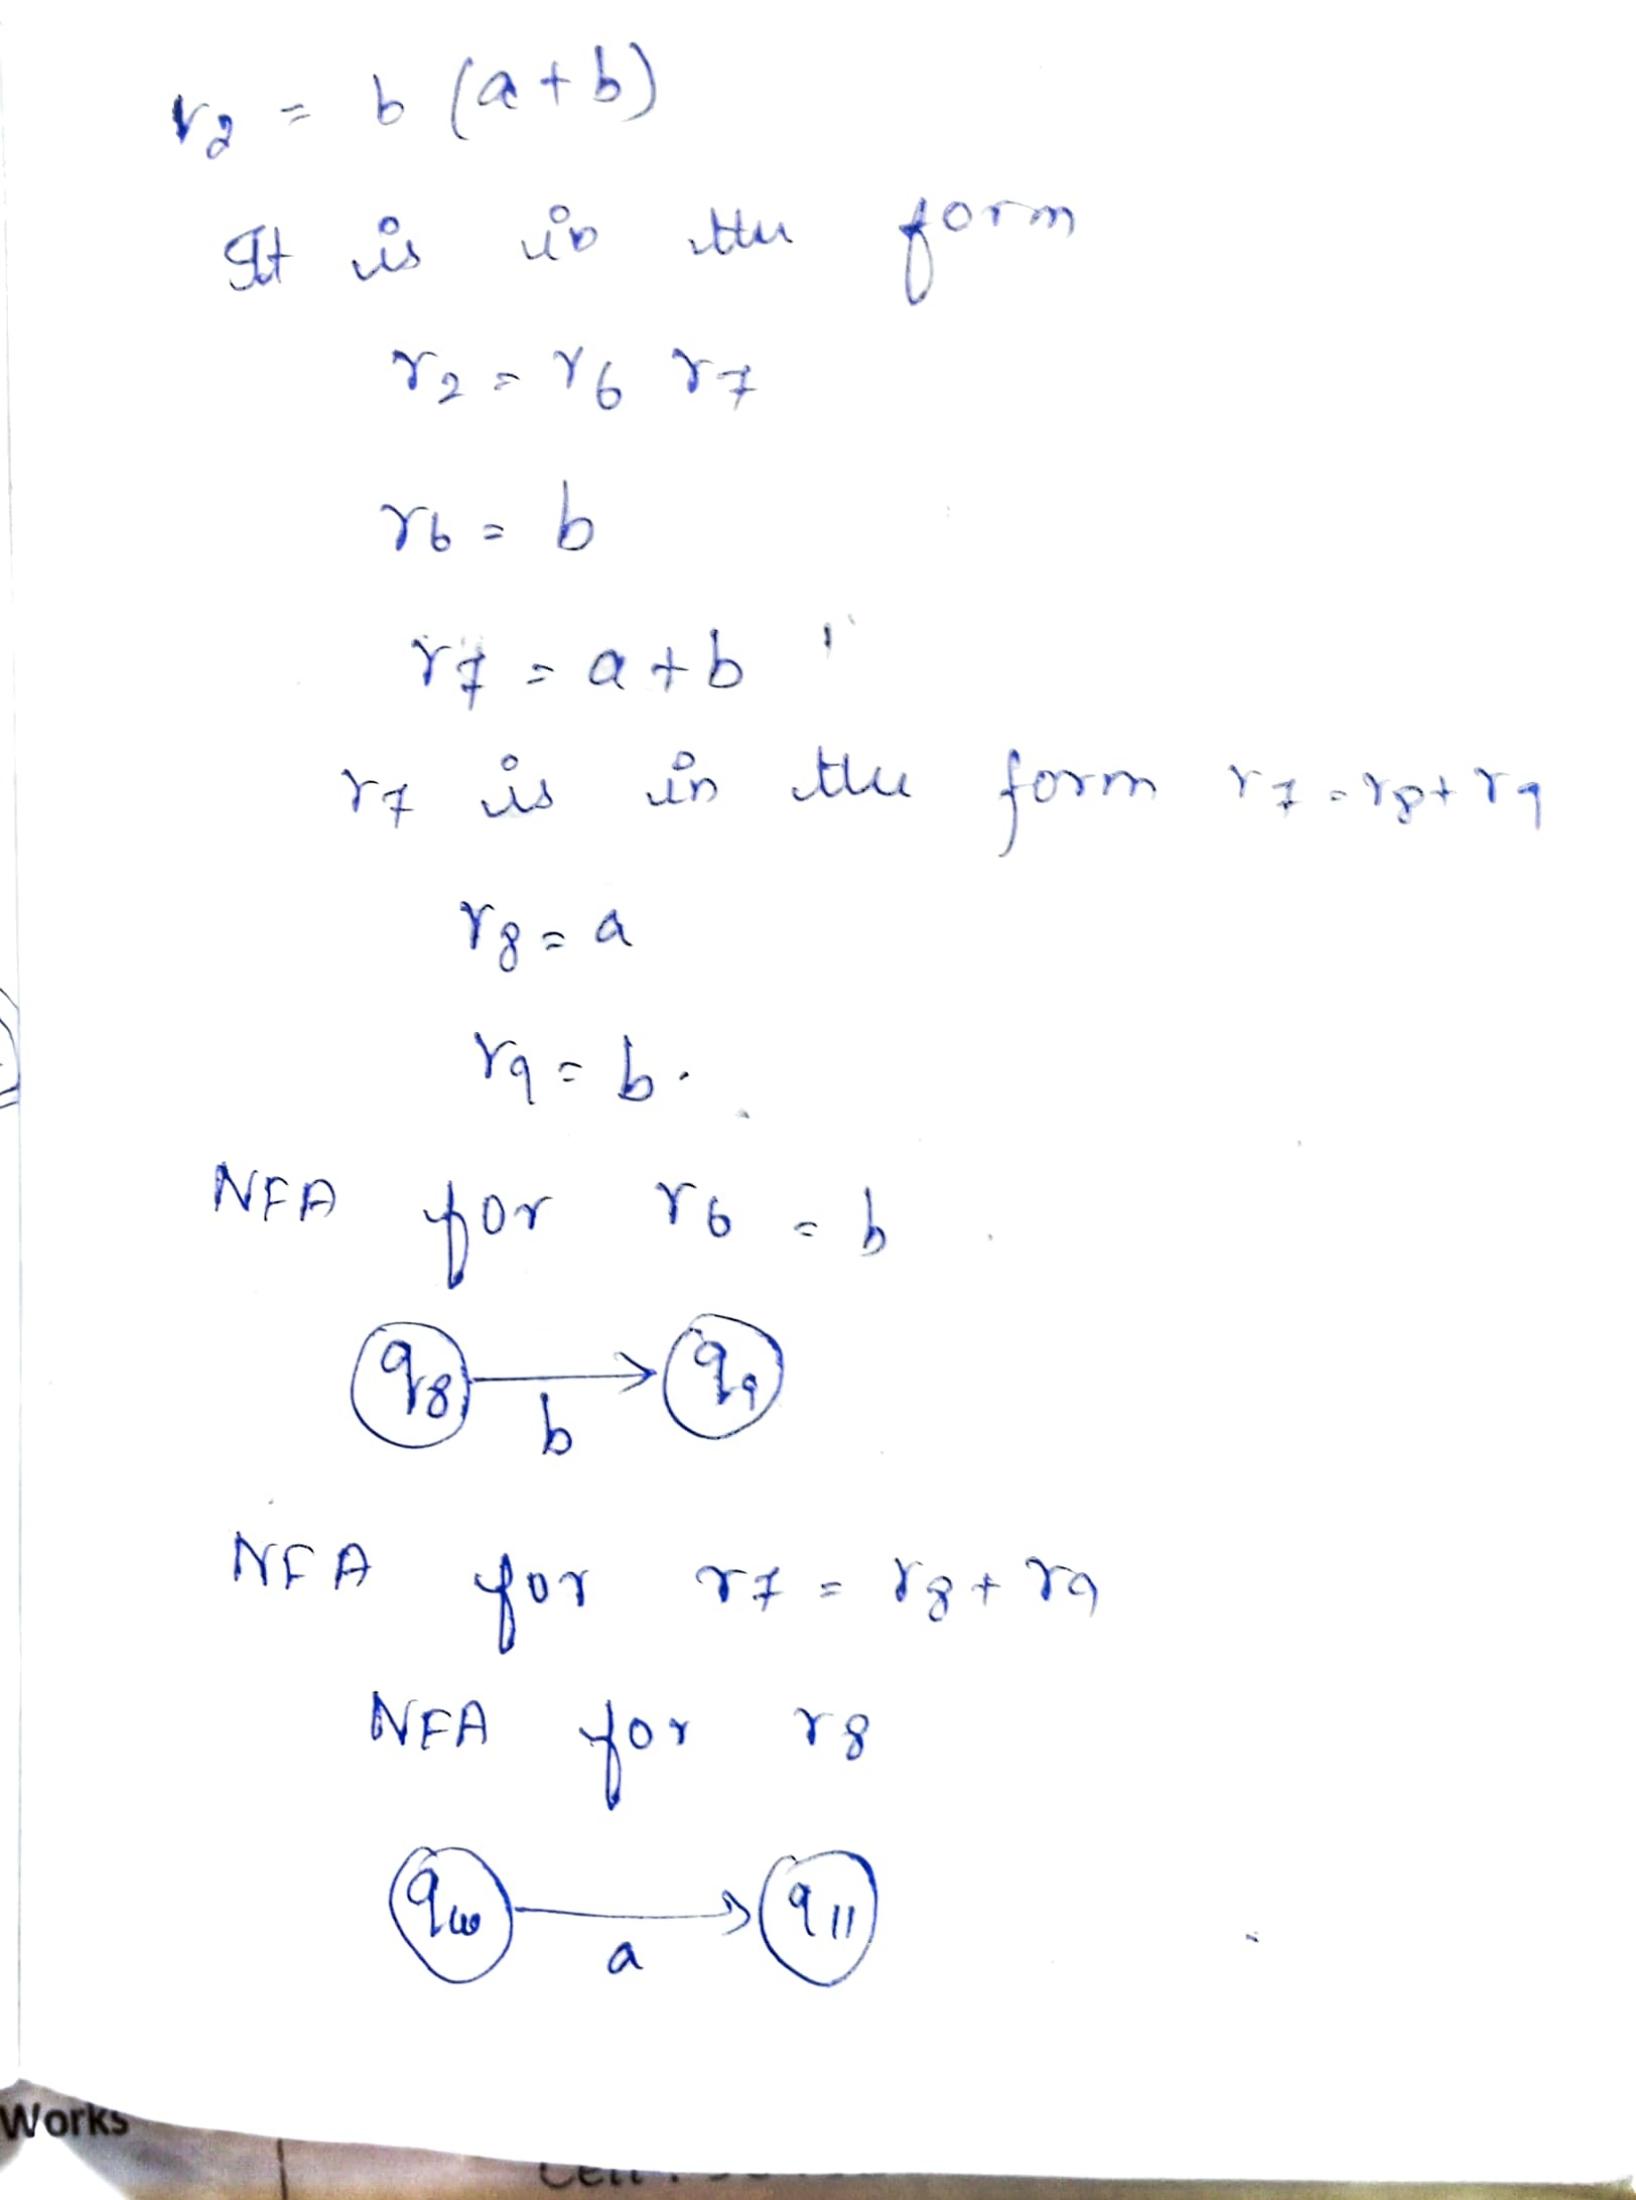 r2 = b (a+b)
It is in the form
r2 = r6 r7
r6 = b
r7 = a+b
r7 is in the form r7 = r8 + r9
r8 = a
r9 = b.
NFA for r6 = b
q8 q9
b
NFA for r7 = r8 + r9
NFA for r8
q10 q11
a
Works